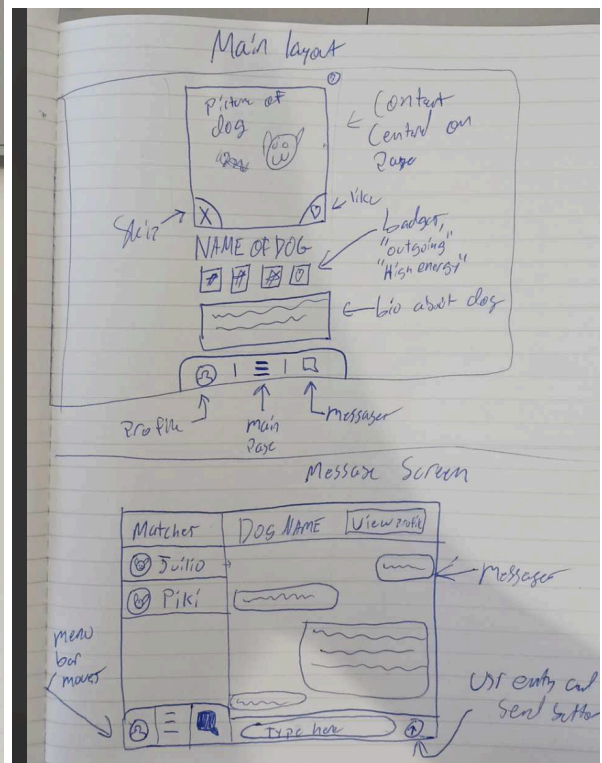 Main layout
Picture of
dog
Content
Centerd on
Page
like
Skip
X
NAME OF DOG
badges,
"outgoing"
"High energy"
bio about dog
Profile
main
Page
messages
Message Screen
Matches
DOG NAME
View Profile
Juilio
Piki
messages
menu
bar
moves
Type here
entry and
Send button